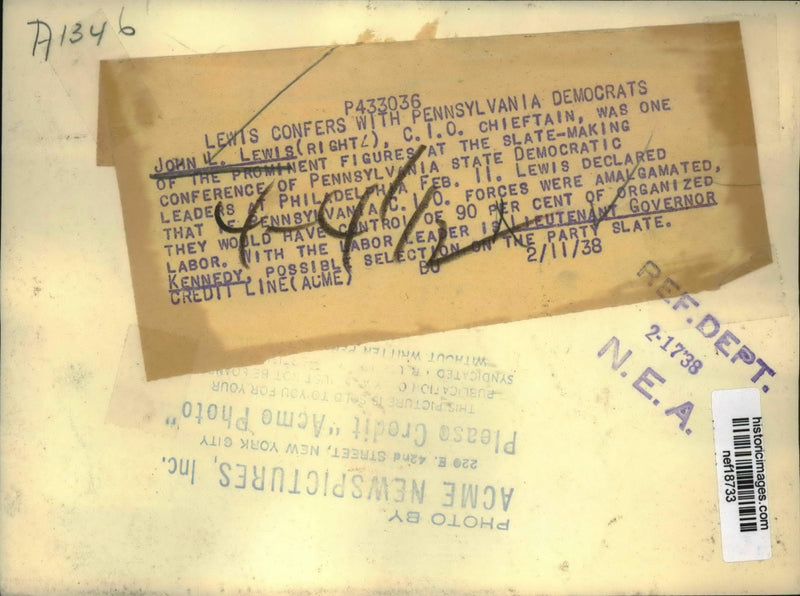 A1346
P433036
LEWIS CONFERS WITH PENNSYLVANIA DEMOCRATS
JOHN L. LEWIS(RIGHT), C.I.O. CHIEFTAIN, WAS ONE
OF THE PROMINENT FIGURES AT THE SLATE-MAKING
CONFERENCE OF PENNSYLVANIA STATE DEMOCRATIC
LEADERS AT PHILADELPHIA FEB. 11. LEWIS DECLARED
THAT PENNSYLVANIA C.I.O. FORCES WERE AMALGAMATED,
THEY WOULD HAVE CONTROL OF 90 PER CENT OF ORGANIZED
LABOR. WITH THE LABOR LEADER IS LIEUTENANT GOVERNOR
KENNEDY, POSSIBLE SELECTION ON THE PARTY SLATE.
CREDIT LINE(ACME) 2/11/38
REF. DEPT.
2-17'38
N.E.A.
historicimages.com
nef18733
PHOTO BY
ACME NEWSPICTURES, Inc.
220 E. 42nd STREET, NEW YORK CITY
Please Credit "Acme Photo"
THIS PICTURE IS SOLD TO YOU FOR YOUR
PUBLICATION
SYNDICATED NOT BE
WITHOUT WRITTEN